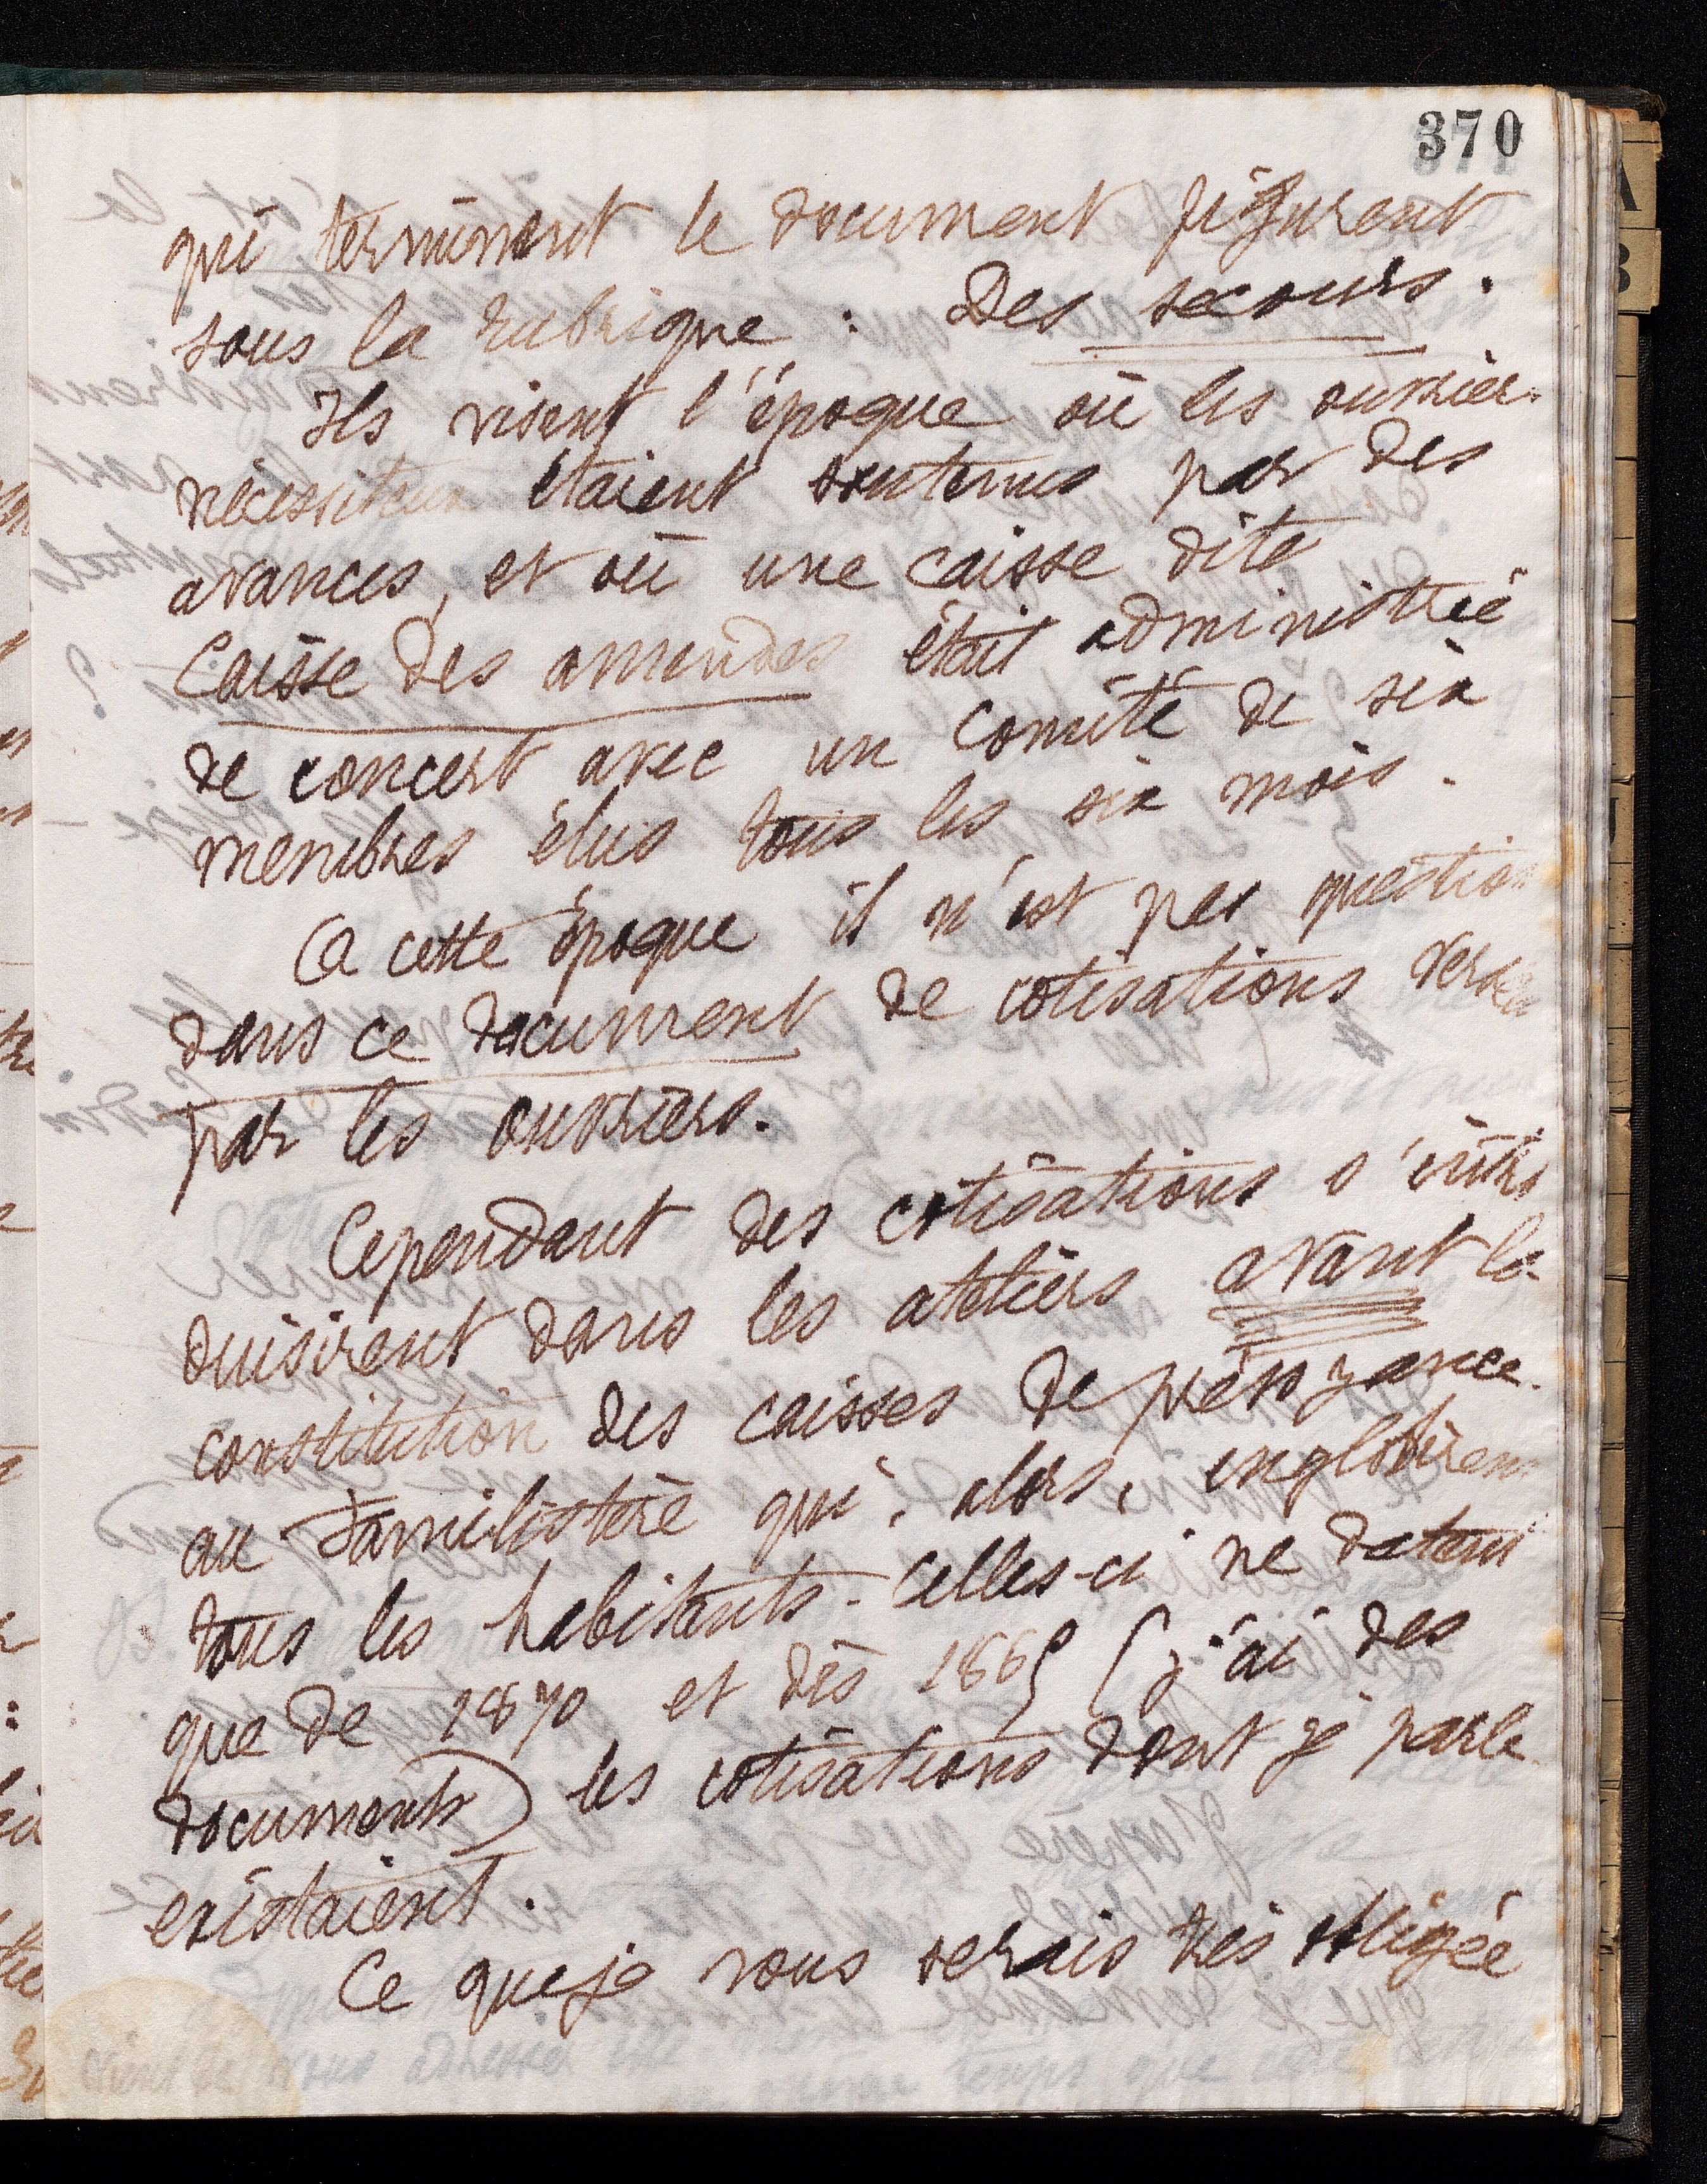 370
qui terminent le document figurent
sous la rubrique : Des secours.
Ils visent l'époque où les ouvriers
nécessiteux étaient soutenus par des
avances, et où une caisse dite
Caisse des amendes était administrée
de concert avec un Comité de six
membres élus tous les six mois.
A cette époque il n'est pas question
dans ce document de cotisations versées
par les ouvriers.
Cependant des cotisations s'intro
duisirent dans les ateliers avant la
constitution des caisses de prévoyance
au Familistère qui, alors, englobèrent
tous les habitants - Celles-ci ne datent
que de 1870 et dès 1865 (j'ai des
documents) les cotisations dont je parle
existaient.
Ce que je vous serais très obligée